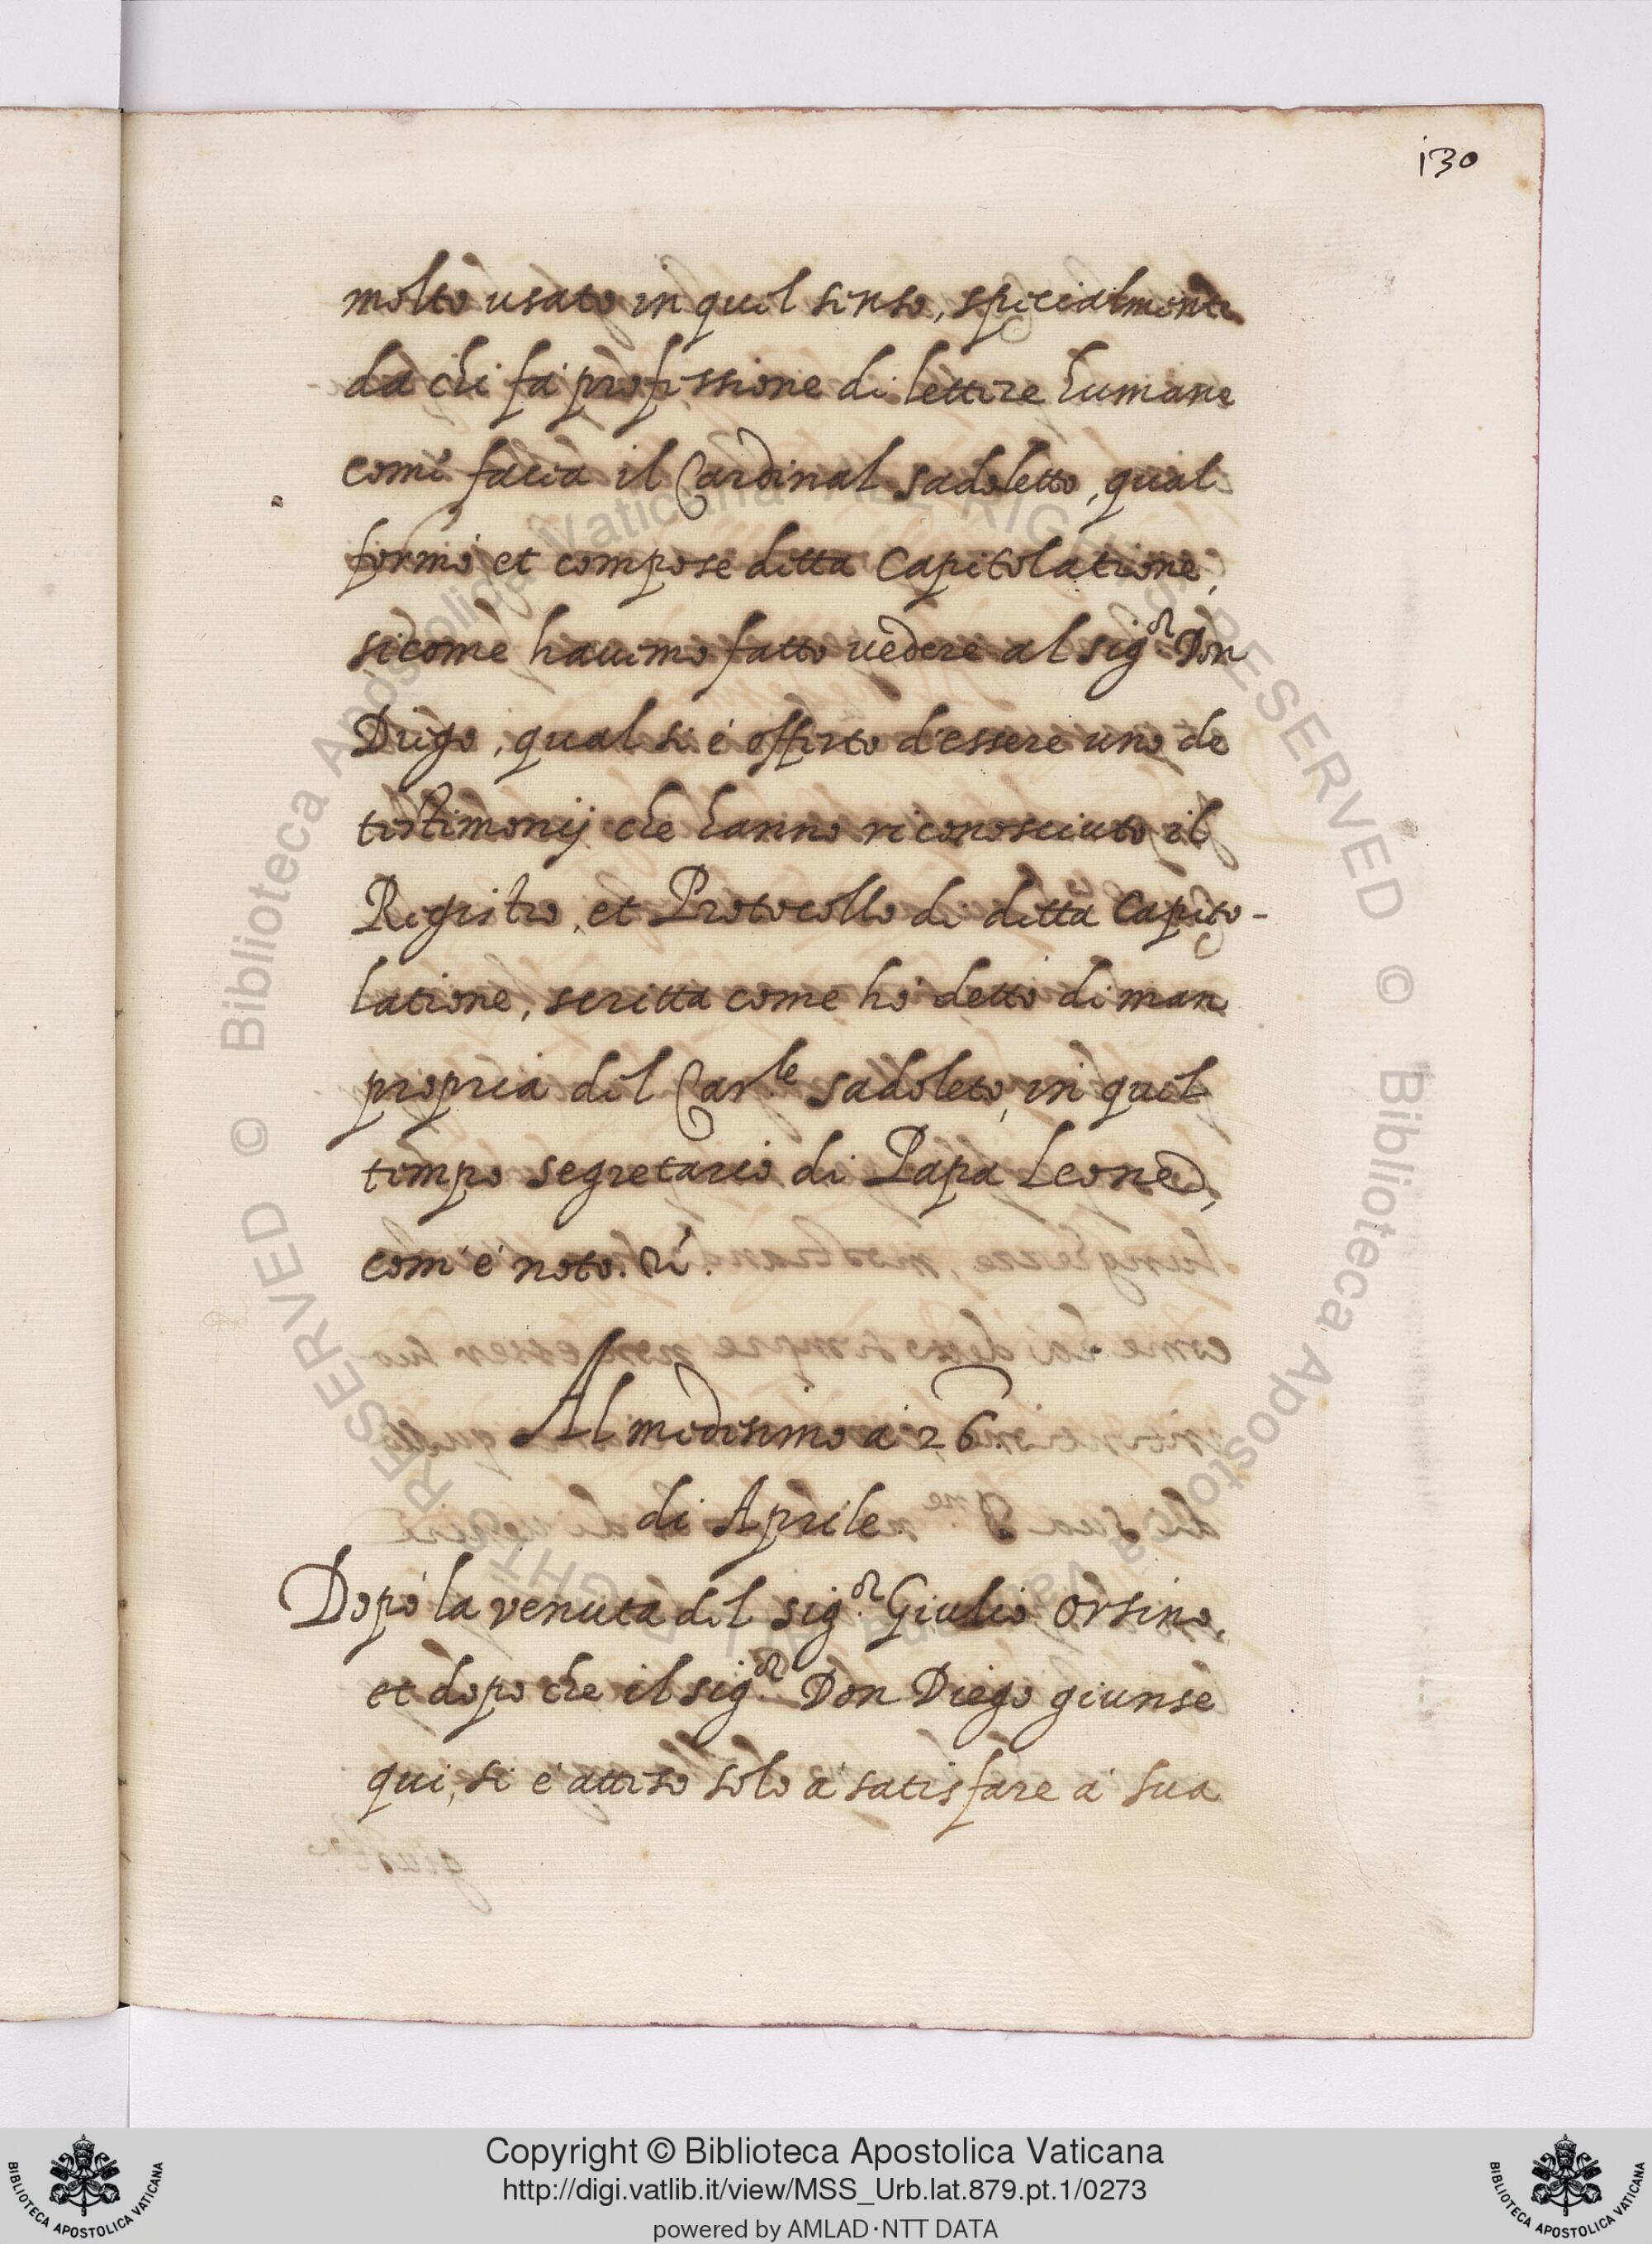 130
molto usato in quel senso, specialmente
da chi fa professione di lettere humane
come facea il Cardinal Sadoletto, qual
formò et compose ditta Capitolatione,
sicome havemo fatto vedere al sig.or Don
Diego, qual si è offerto d'essere uno de
testimonij che hanno riconosciuto il
Registro, et Protocollo di ditta Capito-
latione, scritta come hò detto di man
propria del Car.le Sadoleto, in quel
tempo segretario di Papa Leone,
com'è noto.
Al medesimo à 26.
di Aprile.
Dopò la venuta del sig.or Giulio Orsino,
et dopo che il sig.or Don Diego giunse
qui, si è atteso solo à satisfare à sua
Copyright © Biblioteca Apostolica Vaticana
http://digi.vatlib.it/view/MSS_Urb.lat.879.pt.1/0273
powered by AMLAD·NTT DATA
BIBLIOTECA APOSTOLICA VATICANA
BIBLIOTECA APOSTOLICA VATICANA